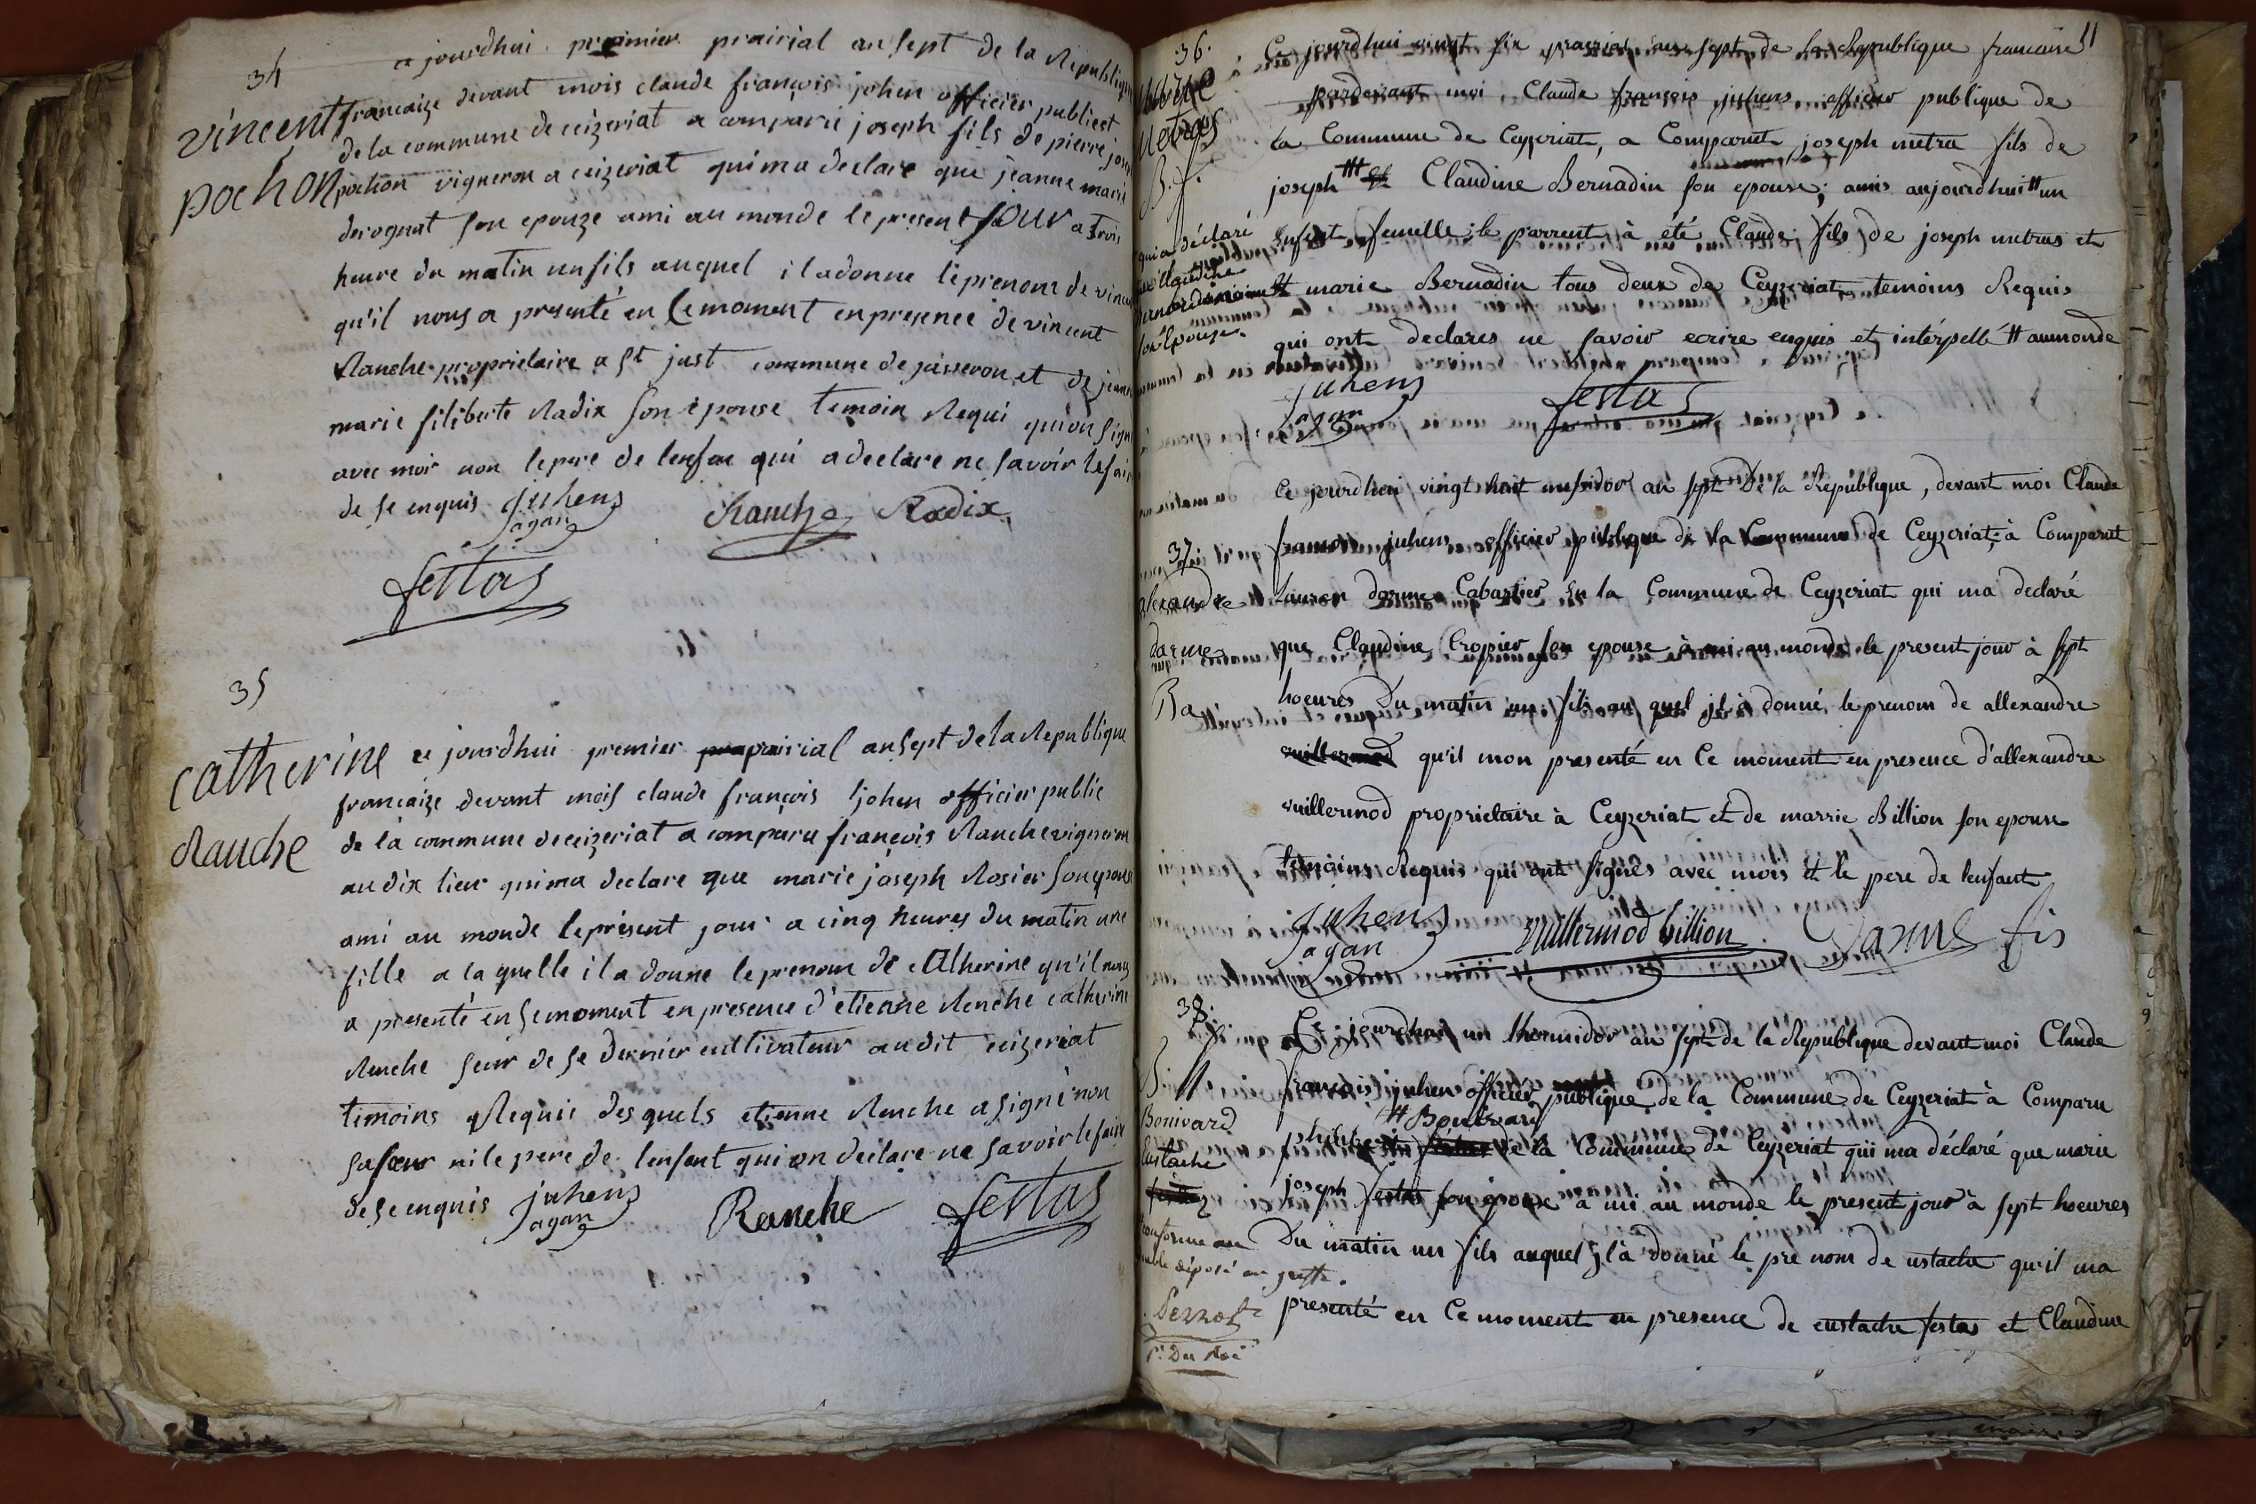 34
vincent
pochon
ce jourdhui premier prairial an sept de la Republique
francaize devant mois claude françois johen officier publicet
de la commune de ceizeriat a comparu joseph fils de pierre joseph
pochon vigneron a ceizeriat qui ma declare que jeanne marie
derognat son epouze ami au monde le present jour a trois
heure du matin un fils auquel il adonne le prenom de vincent
qu'il nous a presenté en ce moment en presence de vincent
Ranche proprietaire a St just commune de jasseron et de jeanne
marie filiberte Radix son epouse temoin Requi qui on signe
avec moi non le pere de lenfan qui a declare ne savoir le faire
de se enquis juhens
agan
Ranche Radix
festas
35
catherine
Ranche
ce jourdhui premier prairial an sept de la Republique
francaize devant mois claude françois johen officier public
de la commune de ceizeriat a comparu françois Ranche vigneron
au dix lieu qui ma declare que marie joseph Rosier son epouse
ami au monde le présent jour a cinq heures du matin une
fille a la quelle il a donne le prenom de catherine qu'il nous
a presenté en se moment en presence d'etienne Renche catherine
Renche seur de se dernier cultivateur audit ceizeriat
temoins Requie des quels etienne Renche a signé non
sa sœur ni le pere de lenfent qui on declare ne savoir le faire
de se enquis juhens
agan
Renche festas
11
36.
metras
B. f.
qui a déclaré
que Claudine
bernardin
son Epouse.
Ce jourdhui vingt six prairial an sept de la Republique francaise
pardevant moi Claude françois juhens officier publique de
la Commune de Ceyzeriat, a Comparut joseph metra fils de
joseph et Claudine Bernadin son epouse; amis aujourdhui un
Enfent femelle; le parrent à été Claude fils de joseph metras et
et marie Bernadin tous deux de Ceyzeriat temoins Requis
qui ont declares ne savoir ecrire enquis et intérpellé # aumonde
juhens
agan
festas
37
alexandre
darmes
Ce jourdhui vingt huit messidor an sept De la République, devant moi Claude
francois juhens officier publique de la Commune de Ceyzeriat à Comparut
lauren darmes Cabartier En la Commune de Ceyzeriat qui ma declaré
que Claudine Cropier son epouze à mi au monde le present jour à sept
hoeures Du matin un fils au quel il à donné le prenom de allexandre
vuillermod qu'il mon presenté en Ce moment en presence d'allexandre
vuillermod proprietaire à Ceyzeriat et de marrie Billion son epouse
temoins Requis qui ont signés avec mois et le pere de lenfant
juhens
agan
vuillermod billion Darmes fis
38.
Bonivard
Eustache
conforme au
double déposé au greffe.
Perrot
pr Du Roi
Ce jourdhui un thermidor an sept de la Republique devant moi Claude
francois juhens officier publique de la Commune de Ceyzeriat à Comparu
# Bonivard
philibert de la Commune de Ceyzeriat qui ma déclaré que marie
joseph festas son epouse à mi au monde le present jour à sept hoeures
Du matin un fils auquel il à donné le pre nom de ustache qu'il ma
presenté en Ce moment en presence de eustache festas et Claudine